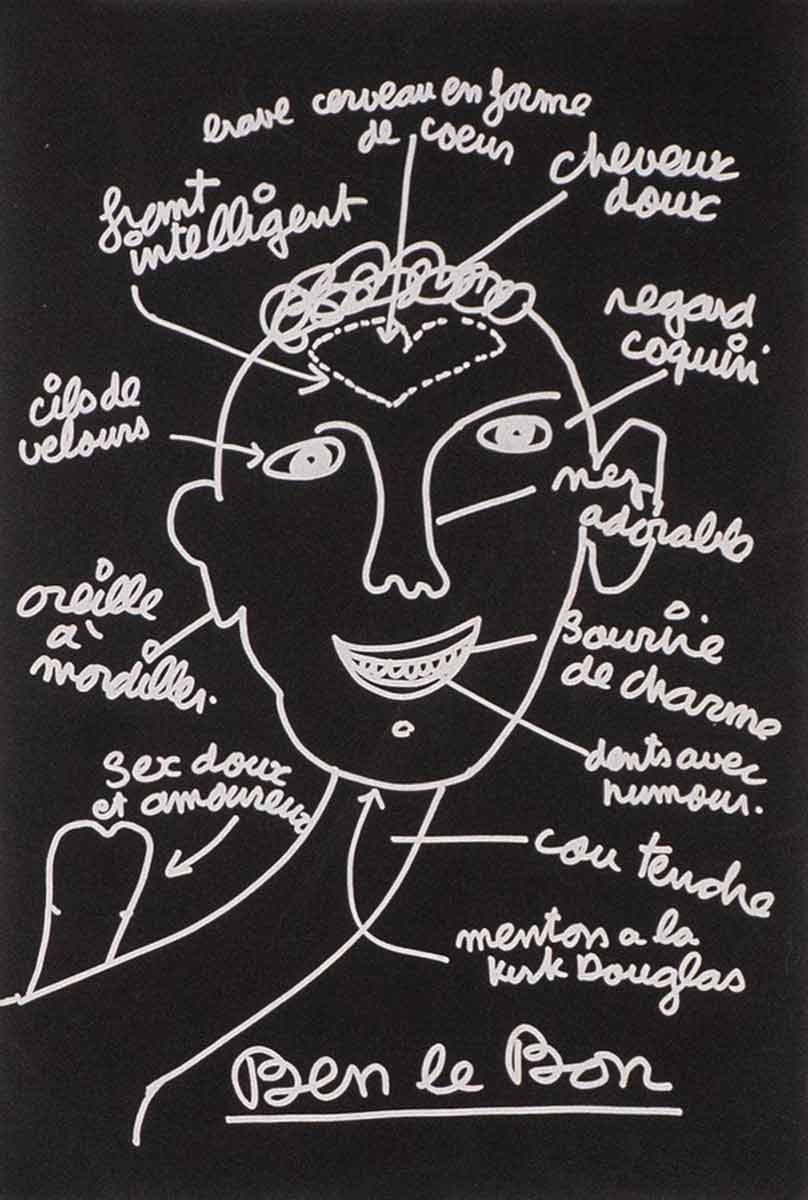 crave cerveau en forme
de coeur
cheveux
doux
front
intelligent
regard
coquin
cils de
velours
nez
adorable
oreille
a'
mordiller.
Sourire
de charme
dents avec
humour.
Sex doux
et amoureux
cou tendre
menton a la
Kirk Douglas
Ben le Bon